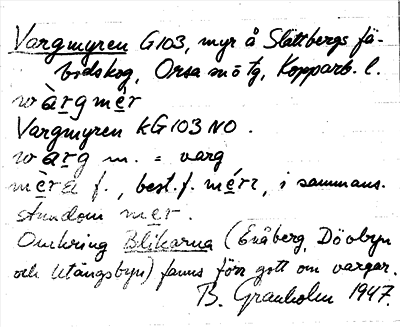 Vargmyren G103, myr å Slättbergs fä-
bodskog, Orsa sn ö tg, Kopparb. l.
wàrgmèr
Vargmyren kG103 NO.
warg m. = varg
mèra f., best. f. mérr, i sammans.
stundom mer.
Omkring Blikarna (Enåberg, Dövbyn
och Utängsbyn) fanns förr gott om vargar.
B. Granholm 1947.